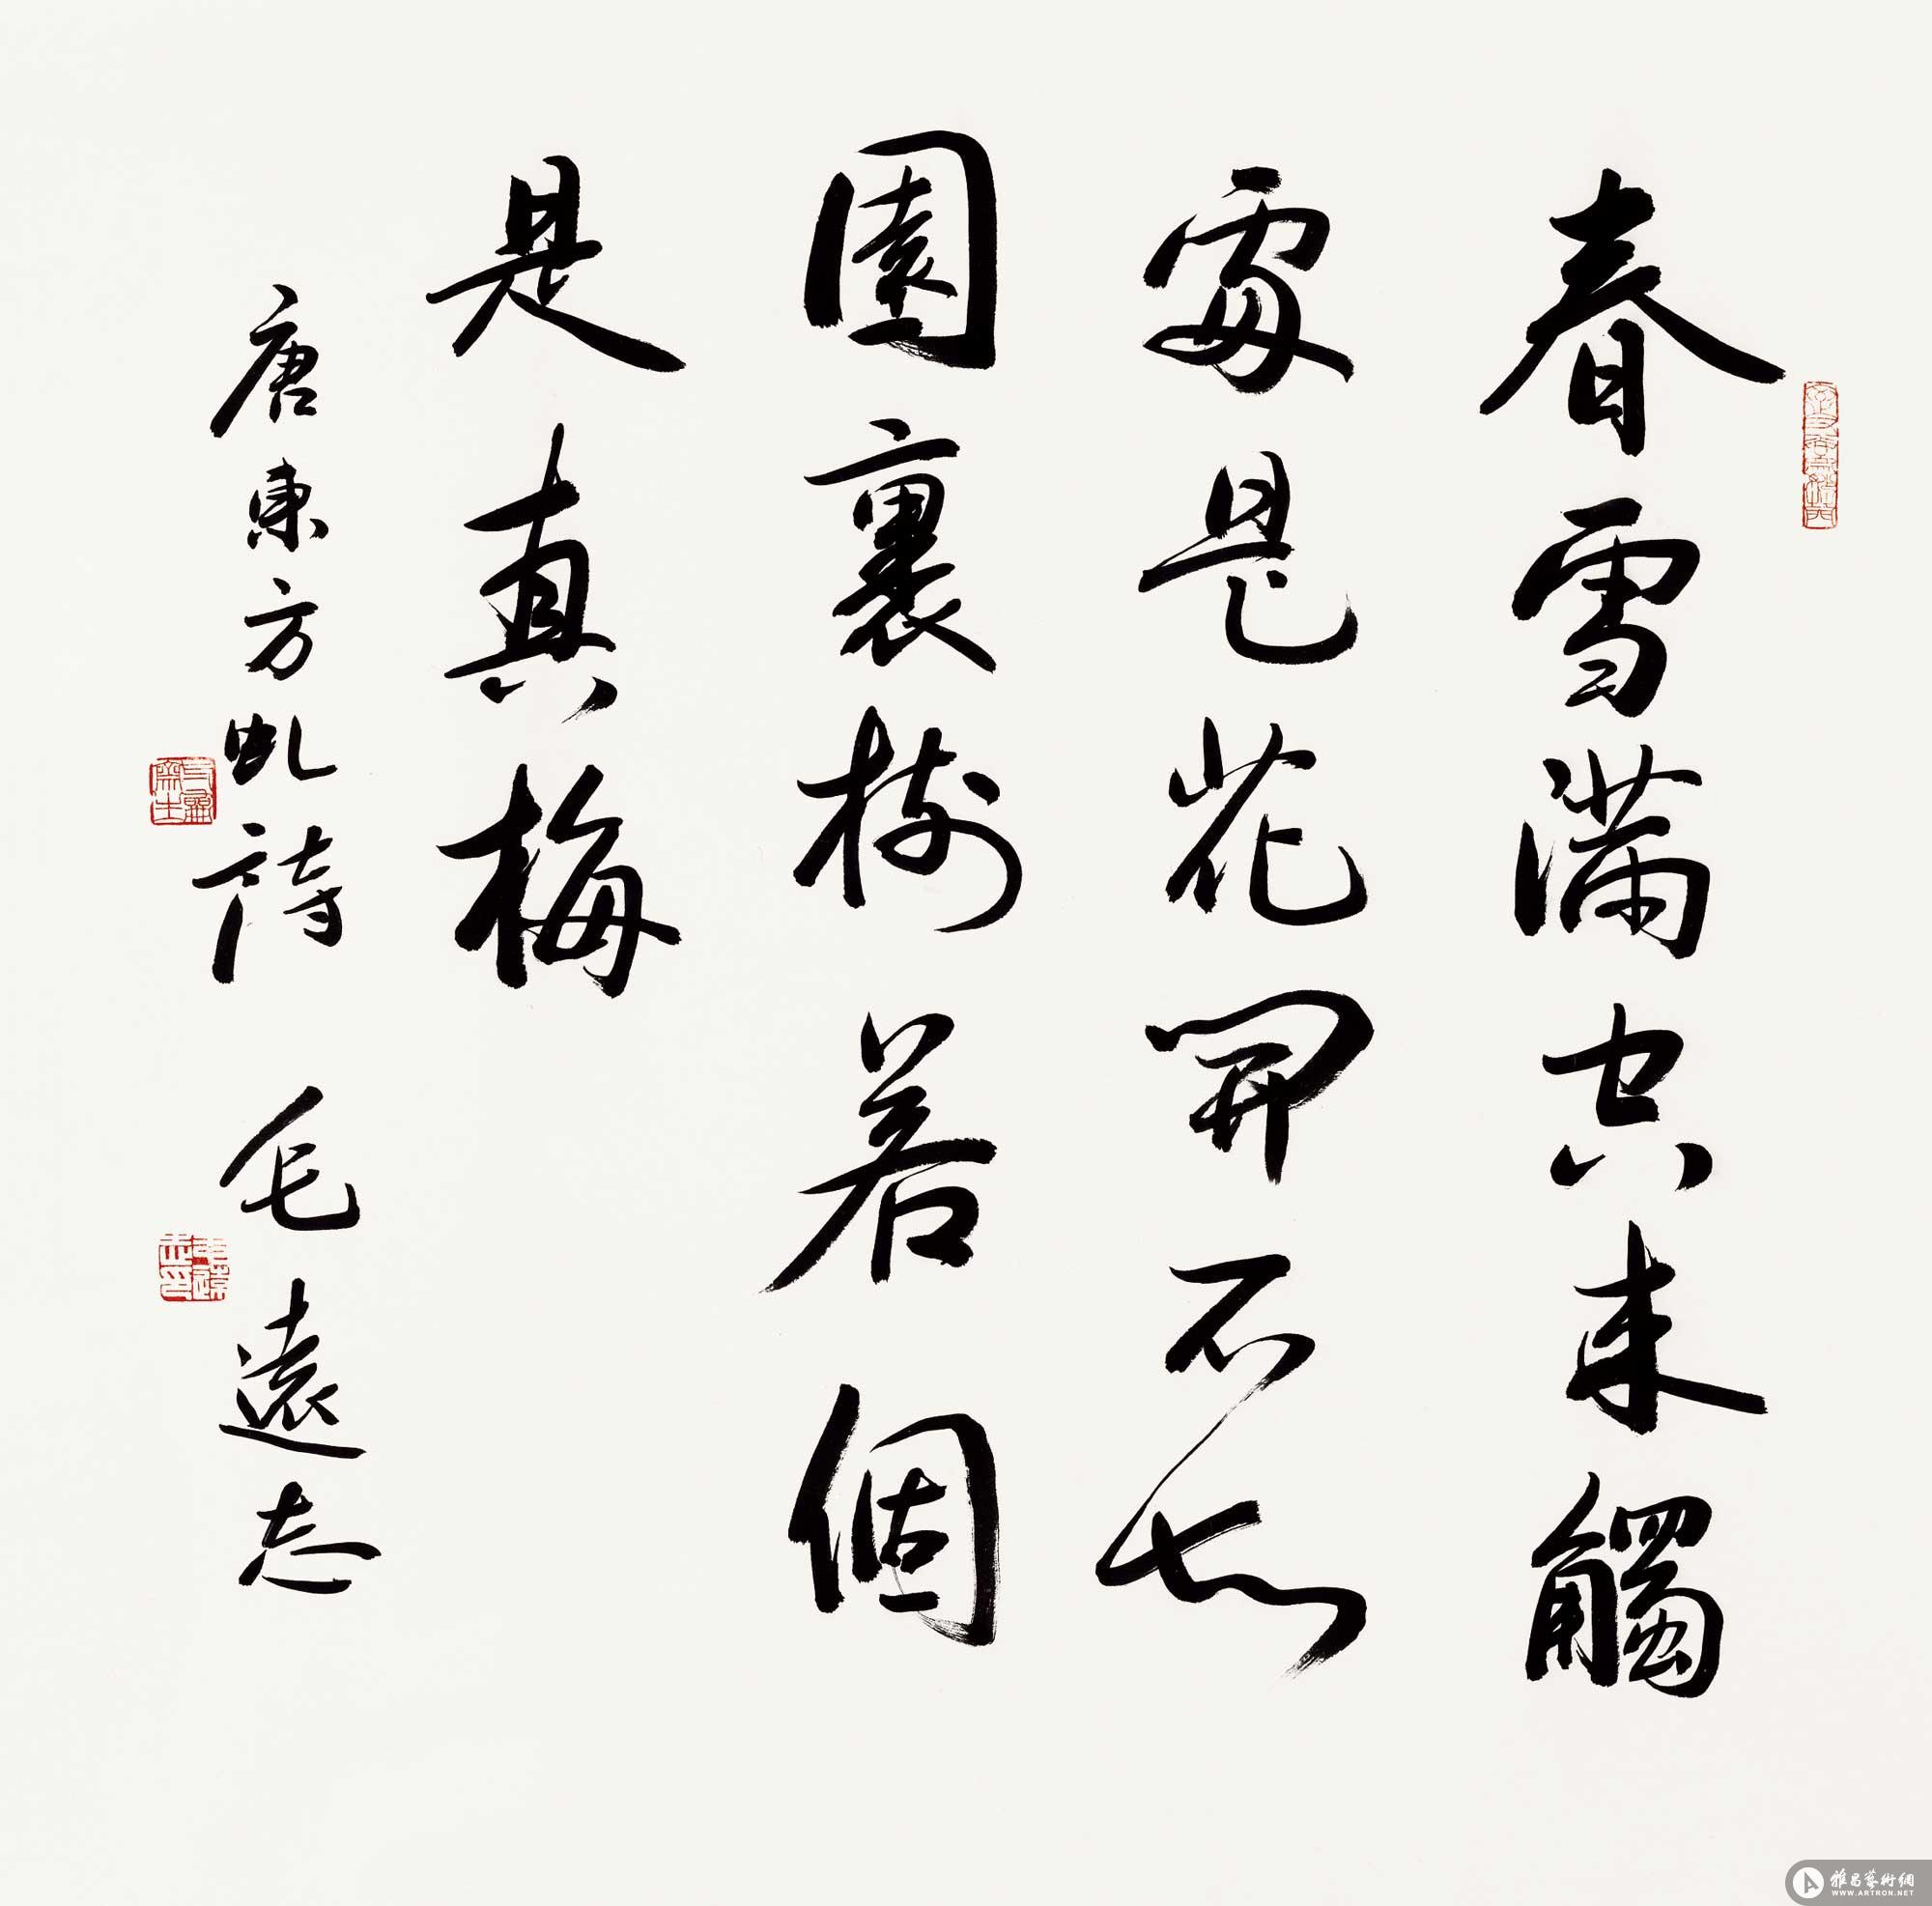 春雪滿空来觸
處是花開不知
園裏樹若個
是真梅
唐東方虬詩 毛遠志
雅昌藝術網
WWW.ARTRON.NET